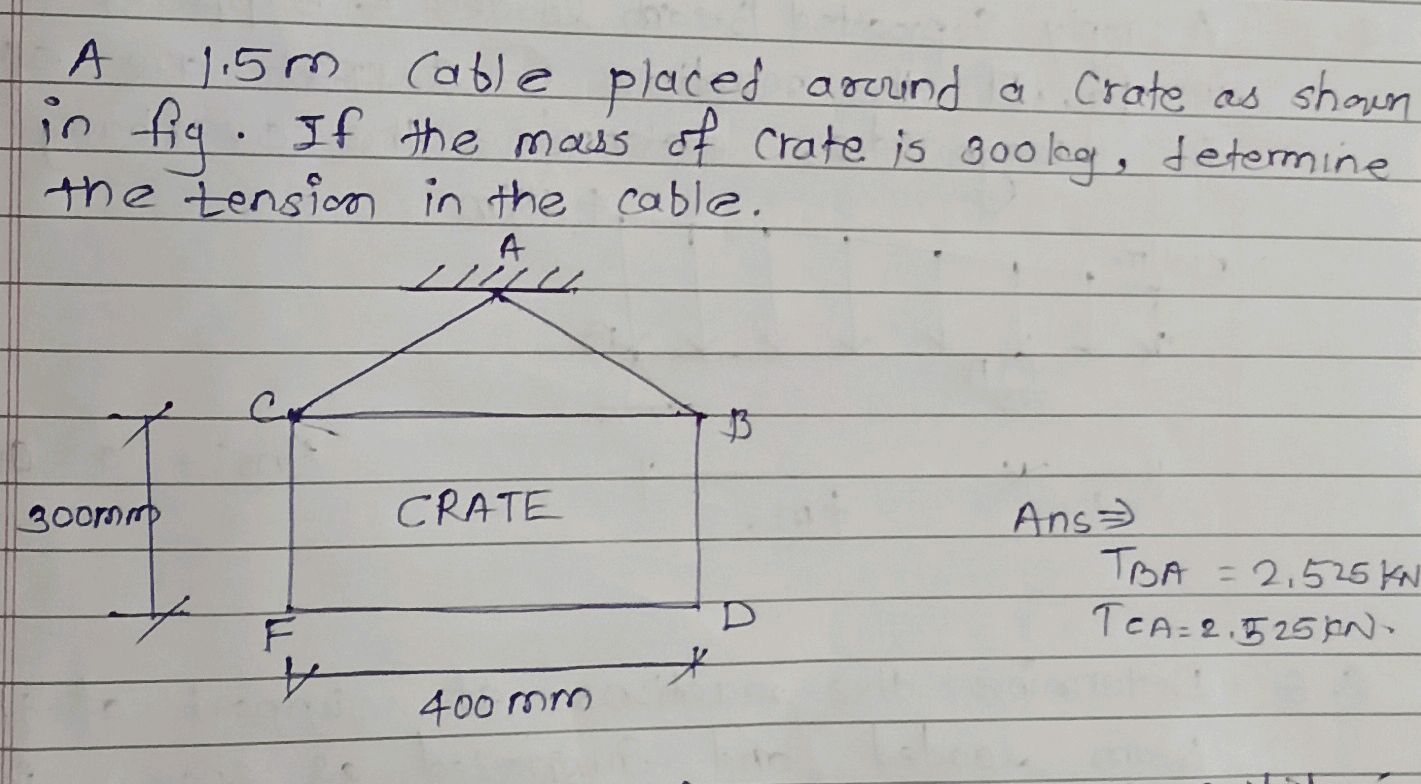 A 1.5m Cable placed around a Crate as shown
in fig. If the mass of Crate is 300kg, determine
the tension in the cable.
A
C
B
300mm
CRATE
Ans⇒
TBA = 2.525 KN
TCA = 2.525 KN.
F
D
400 mm